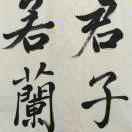 君子
若蘭